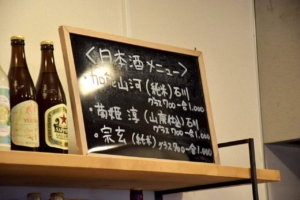 <日本酒メニュー>
・加賀山河(純米)石川
グラス700 一合1.000
・菊姫 淳(山廃仕込)石川
グラス700 一合1.000
・宗玄(純米)
グラス700 一合1.000